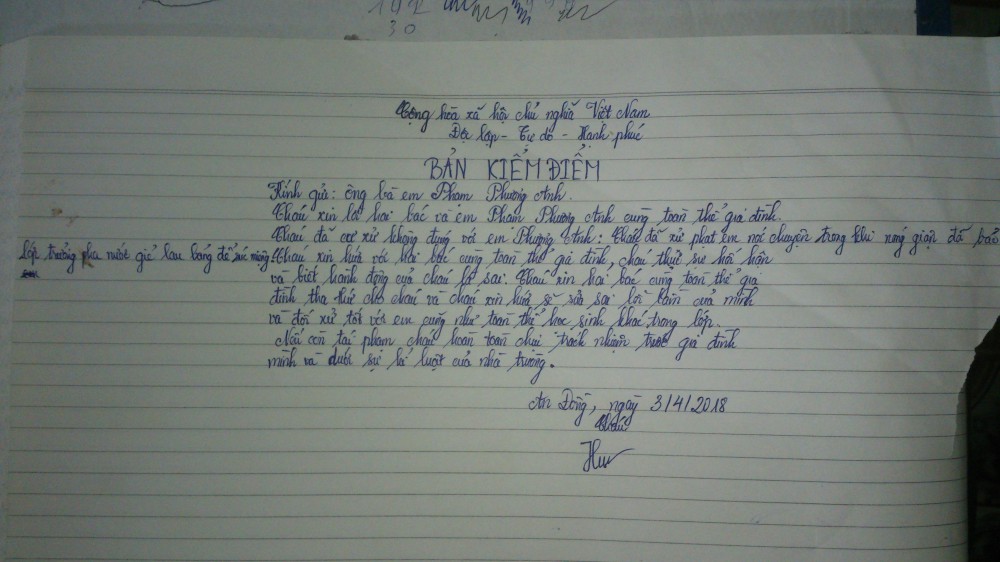 Cộng hòa xã hội chủ nghĩa Việt Nam
Độc lập - Tự do - Hạnh phúc
BẢN KIỂM ĐIỂM
Kính gửi: ông bà em Phạm Phương Anh.
Cháu xin lỗi hai bác và em Phạm Phương Anh cùng toàn thể gia đình.
Cháu đã cư xử không đúng với em Phương Anh: Cháu đã xử phạt em nói chuyện trong khi nóng giận đã bảo
lớp trưởng pha nước giẻ lau bảng để súc miệng. Cháu xin hứa với hai bác cùng toàn thể gia đình, cháu thực sự hối hận
và biết hành động của cháu là sai. Cháu xin hai bác cùng toàn thể gia
đình tha thứ cho cháu và cháu xin hứa sẽ sửa sai lỗi lầm của mình
và đối xử tốt với em cũng như toàn thể học sinh khác trong lớp.
Nếu còn tái phạm cháu hoàn toàn chịu trách nhiệm trước gia đình
mình và dưới sự kỉ luật của nhà trường.
An Đồng, ngày 3/4/2018
Cháu
Hư